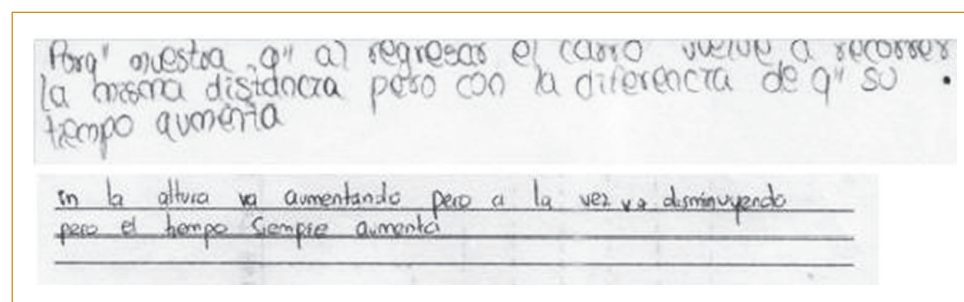 Porq" muestra q" al regresar el carro vuelve a recorrer
la misma distancia pero con la diferencia de q" su
tiempo aumenta
en la altura va aumentando pero a la vez va disminuyendo
pero el tiempo siempre aumenta